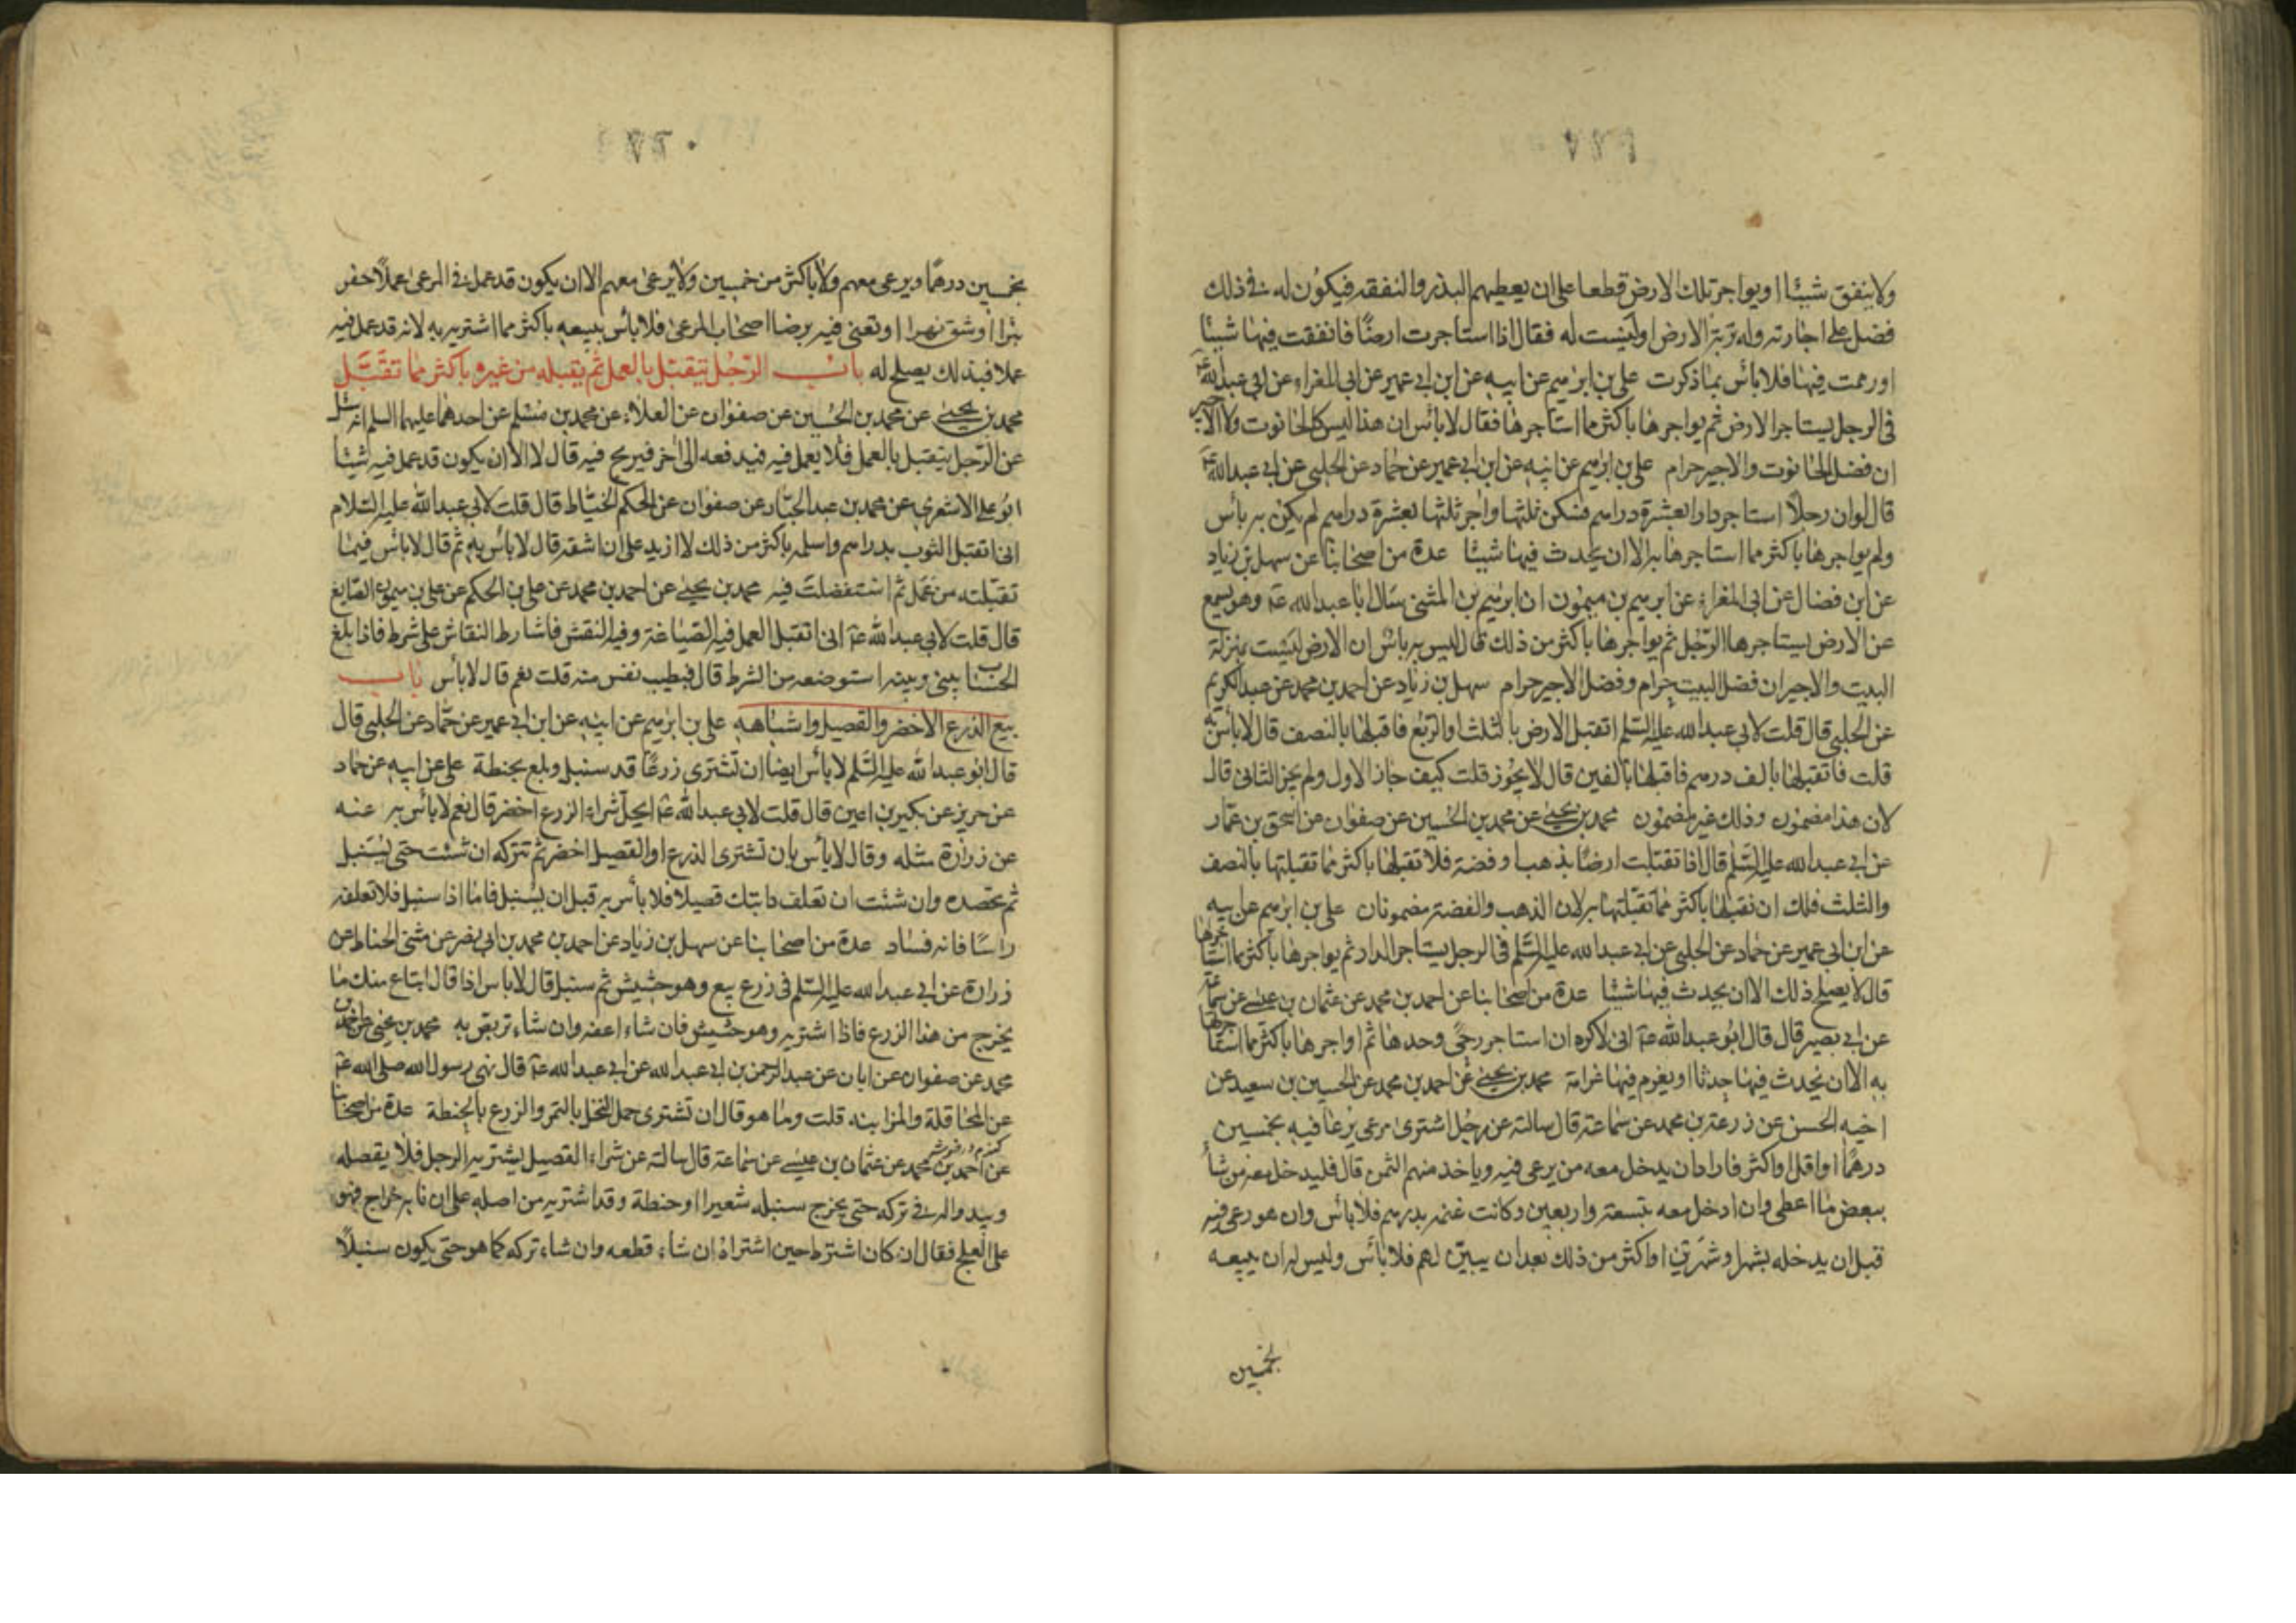 ولا ينفق شيئا او يواجر تلك الارض قطعا على ان يعطيهم البذر والنفقه فيكون له فى ذلك
فضل على اجارته وله تربة الارض او ليست له فقال اذا استاجرت ارضا فانفقت فيها شيئا
او رممت فيها فلا بأس بما ذكرت على بن ابرهيم عن ابيه عن ابن ابى عمير عن ابى المغراء عن ابى عبدالله ع
فى الرجل يستاجر الارض ثم يواجرها باكثر مما استاجرها فقال لا بأس ان هذا ليس كالحانوت ولا الاجير
ان فضل الحانوت والاجير حرام على بن ابرهيم عن ابيه عن ابن ابى عمير عن حماد عن الحلبى عن ابى عبدالله ع
قال لو ان رجلا استاجر دارا بعشرة دراهم فسكن ثلثها واجر ثلثها بعشرة دراهم لم يكن به بأس
ولم يواجرها باكثر مما استاجرها به الا ان يحدث فيها شيئا عدة من اصحابنا عن سهل بن زياد
عن ابن فضال عن ابى المغراء عن ابرهيم بن ميمون ان ابرهيم بن المثنى سال ابا عبدالله ع وهو يسمع
عن الارض يستاجرها الرجل ثم يواجرها باكثر من ذلك قال ليس به بأس ان الارض ليست بمنزلة
البيت والاجير ان فضل البيت حرام وفضل الاجير حرام سهل بن زياد عن احمد بن محمد عن عبدالكريم
عن الحلبى قال قلت لابى عبدالله عليه السلم اتقبل الارض بالثلث او الربع فاقبلها بالنصف قال لا بأس به
قلت فاتقبلها بالف درهم فاقبلها بالفين قال لا يجوز قلت كيف جاز الاول ولم يجز الثانى قال
لان هذا مضمون وذلك غير مضمون محمد بن يحيى عن محمد بن الحسين عن صفوان عن اسحق بن عمار
عن ابى عبدالله عليه السلم قال اذا تقبلت ارضا بذهب او فضة فلا تقبلها باكثر مما تقبلتها بالنصف
والثلث فلك ان تقبلها باكثر مما تقبلتها به لان الذهب والفضة مضمونان على بن ابرهيم عن ابيه
عن ابن ابى عمير عن حماد عن الحلبى عن ابى عبدالله عليه السلم فى الرجل يستاجر الدار ثم يواجرها باكثر مما استاجرها
قال لا يصلح ذلك الا ان يحدث فيها شيئا عدة من اصحابنا عن احمد بن محمد عن عثمان بن عيسى عن سماعة
عن ابى بصير قال قال ابو عبدالله ع انى لاكره ان استاجر رحى وحدها ثم اواجرها باكثر مما استاجرها
به الا ان نحدث فيها حدثا او يغرم فيها غرامة محمد بن يحيى عن احمد بن محمد عن الحسين بن سعيد عن
اخيه الحسن عن زرعة بن محمد عن سماعة قال سالته عن رجل اشترى مرعى يرعا فيه بخمسين
درهما او اقل او اكثر فاراد ان يدخل معه من يرعى فيه وياخذ منهم الثمن قال فليدخل معه من شاء
ببعض ما اعطى وان ادخل معه بتسعة واربعين وكانت غنمه بدرهم فلا بأس وان هو رعى فيه
قبل ان يدخله بشهر او شهرين او اكثر من ذلك بعد ان يبين لهم فلا بأس وليس له ان يبيعه
بخمسين
بخمسين درهما ويرعى معهم ولا باكثر من خمسين ولا يرعى معهم الا ان يكون قد عمل فى المرعى عملا حفر
بئرا او شق نهرا او تعنى فيه برضا اصحاب المرعى فلا بأس ببيعه باكثر مما اشتريه به لانه قد عمل فيه
عملا فبذلك يصلح له باب الرجل يتقبل بالعمل ثم يقبله من غيره باكثر مما تقبل
محمد بن يحيى عن محمد بن الحسين عن صفوان عن العلاء عن محمد بن مسلم عن احدهما عليهما السلم انه سئل
عن الرجل يتقبل بالعمل فلا يعمل فيه فيدفعه الى اخر فيربح فيه قال لا الا ان يكون قد عمل فيه شيئا
ابو على الاشعرى عن محمد بن عبد الجبار عن صفوان عن الحكم الخياط قال قلت لابى عبدالله عليه السلام
انى اتقبل الثوب بدراهم واسلمه باكثر من ذلك لا ازيد على ان اشقه قال لا بأس به ثم قال لا بأس فيما
تقبلته من عمل ثم استفضلت فيه محمد بن يحيى عن احمد بن محمد عن على بن الحكم عن على بن ميمون الصايغ
قال قلت لابى عبدالله ع انى اتقبل العمل فيه الصياغة وفيه النقش فاشارط النقاش على شرط فاذا بلغ
الحساب بينى وبينه استوضعه من الشرط قال فبطيب نفس منه قلت نعم قال لا بأس باب
بيع الذرع الاخضر والقصيل واشباهه على بن ابرهيم عن ابيه عن ابن ابى عمير عن حماد عن الحلبى قال
قال ابو عبدالله عليه السلم لا بأس ايضا ان تشترى زرعا قد سنبل وبلغ بحنطة على عن ابيه عن حماد
عن حريز عن بكير بن اعين قال قلت لابى عبدالله ع ايحل شراء الزرع اخضر قال نعم لا بأس به عنه
عن زرارة مثله وقال لا بأس بان تشترى الذرع او القصيل اخضر ثم تتركه ان شئت حتى يسنبل
ثم تحصده وان شئت ان تعلف دابتك قصيلا فلا بأس به قبل ان يسنبل فاما اذا سنبل فلا تعلفه
راسا فانه فساد عدة من اصحابنا عن سهل بن زياد عن احمد بن محمد بن ابى نصر عن مثنى الحناط عن
زرارة عن ابى عبدالله عليه السلم فى زرع بيع وهو حشيش ثم سنبل قال لا باس اذا قال ابتاع منك ما
يخرج من هذا الزرع فاذا اشتريه وهو حشيش فان شاء اعفه وان شاء تربص به محمد بن يحيى عن
محمد عن صفوان عن ابان عن عبد الرحمن بن ابى عبدالله عن ابى عبدالله ع قال نهى رسول الله صلى الله ع
عن المحاقلة والمزابنه قلت وما هو قال ان تشترى حمل النخل بالتمر والزرع بالحنطة عدة من اصحابنا
عن احمد بن محمد عن عثمان بن عيسى عن سماعة قال سالته عن شراء القصيل يشتريه الرجل فلا يقصله
ويبدو له فى تركه حتى يخرج سنبله شعيرا او حنطة وقد اشتريه من اصله على ان ما به خراج فهو
على العلج فقال ان كان اشترط حين اشتراه ان شاء قطعه وان شاء تركه كما هو حتى يكون سنبلا